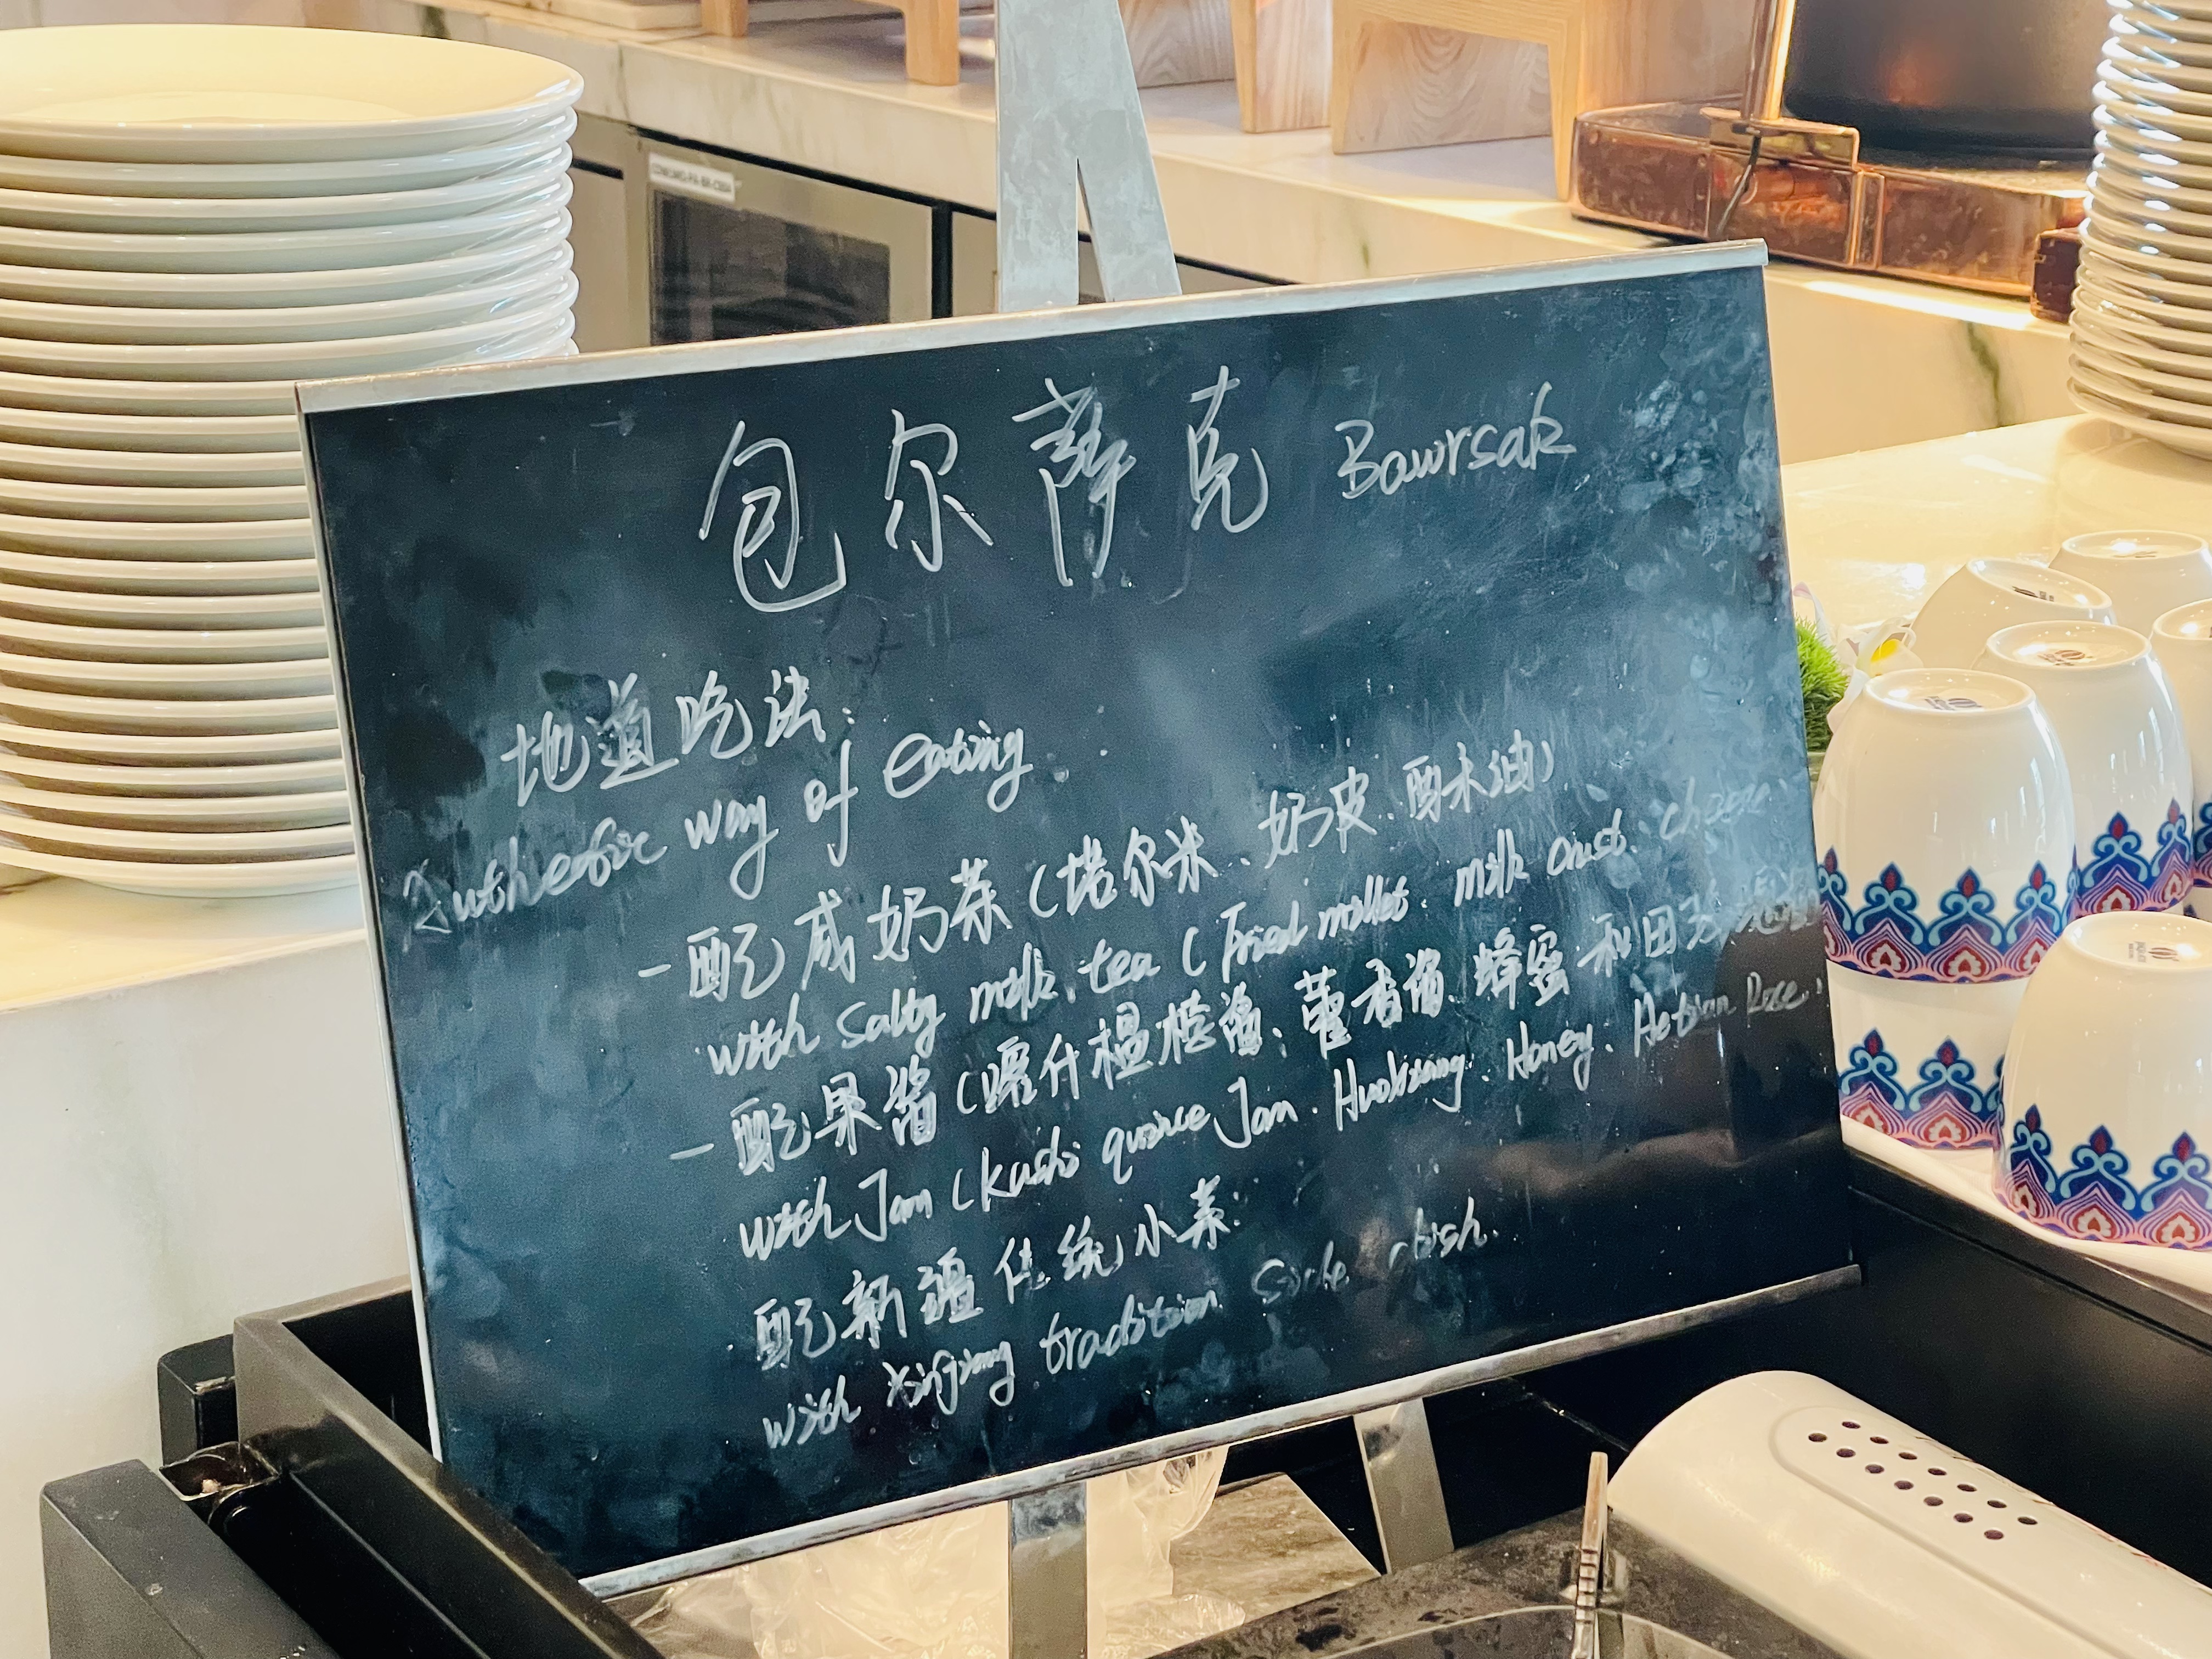 包尔萨克 Bawrsak
地道吃法:
Authentic way of eating.
- 配咸奶茶(塔尔米、奶皮、酥油)
with Salty milk tea ( Fried millet. milk crust. cheese
- 配果酱(喀什榅桲酱、藿香酱、蜂蜜 和田玫瑰
with Jam ( kashi quince Jam. Huoxiang. Honey. Hetian Rose.
配新疆传统小菜:
with xinjiang tradition side